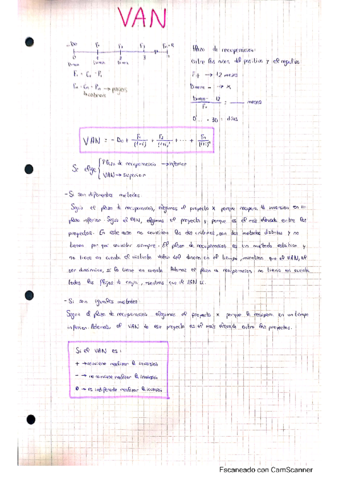 VAN
-Do F1 F2 F3 Fn+R
0 1 2 3 n
Plazo de recuperación:
entre los meses del positivo y el negativo
12 meses
meses
días
VAN = - Do + F1/(1+i) + F2/(1+i)² + ... + Fn/(1+i)ⁿ
Se elige { Plazo de recuperación → inferior
VAN → superior
- Si son diferentes métodos
Según el plazo de recuperación, elegimos el proyecto x porque recupera la inversión en
plazo inferior. Según el VAN, elegimos el proyecto y porque es el más elevado entre los
proyectos. En este caso no coinciden los dos criterios, son dos métodos distintos y no
tienen por qué coincidir siempre. El plazo de recuperación es un método estático y
no tiene en cuenta el distinto valor del dinero en el tiempo, mientras que el VAN, al
ser dinámico, sí lo tiene en cuenta. Además el plazo de recuperación no tiene en cuenta
todos los flujos de caja, mientras que el VAN sí.
- Si son iguales métodos
Según el plazo de recuperación elegimos el proyecto x porque lo recupera en un tiempo
inferior. Además el VAN de ese proyecto es el más elevado entre los proyectos.
Si el VAN es:
+ → conviene realizar la inversión
- → no conviene realizar la inversión
0 → es indiferente realizar la inversión
Escaneado con CamScanner